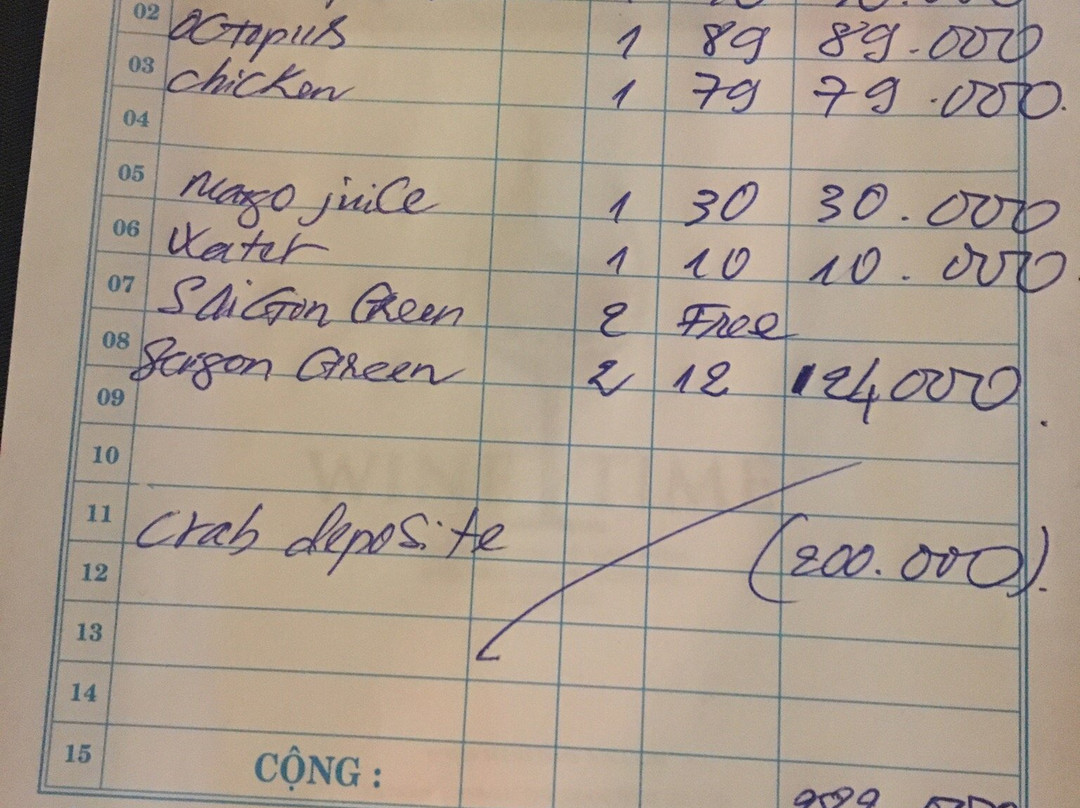 02 Octopus 1 89 89.000
03 chicken 1 79 79.000.
04
05 mago juice 1 30 30.000
06 Water 1 10 10.000.
07 SaiGon Green 2 Free
08 Saigon Green 2 12 124000
09
10
WINE TIME
11 Crab deposite (200.000).
12
13
14
15 CỘNG :